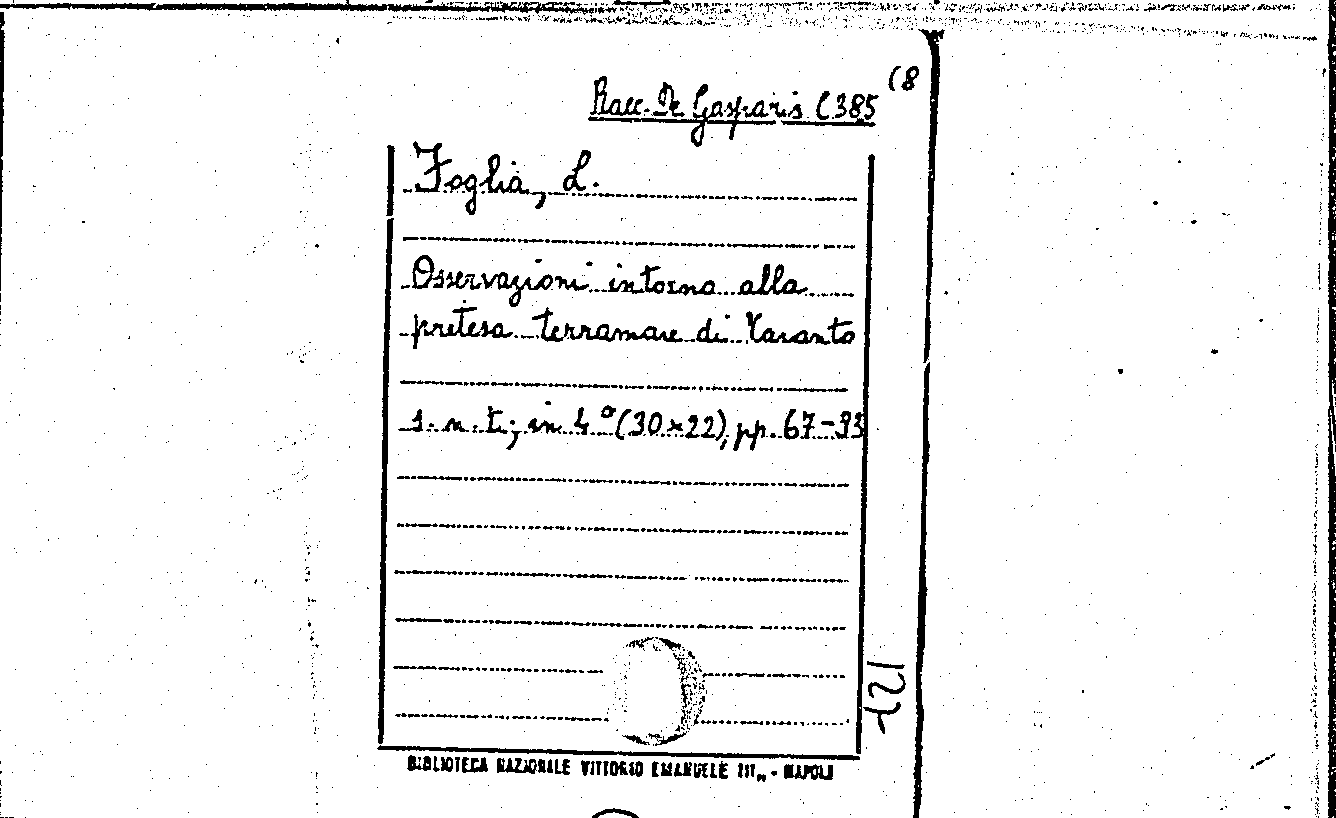 (8
Racc. De Gasparis C 385
Foglia, L.
Osservazioni intorno alla
pretesa terramare di Taranto
s. n. t.; in 4° (30×22), pp. 67-93
121
BIBLIOTECA NAZIONALE VITTORIO EMANUELE III„ - NAPOLI